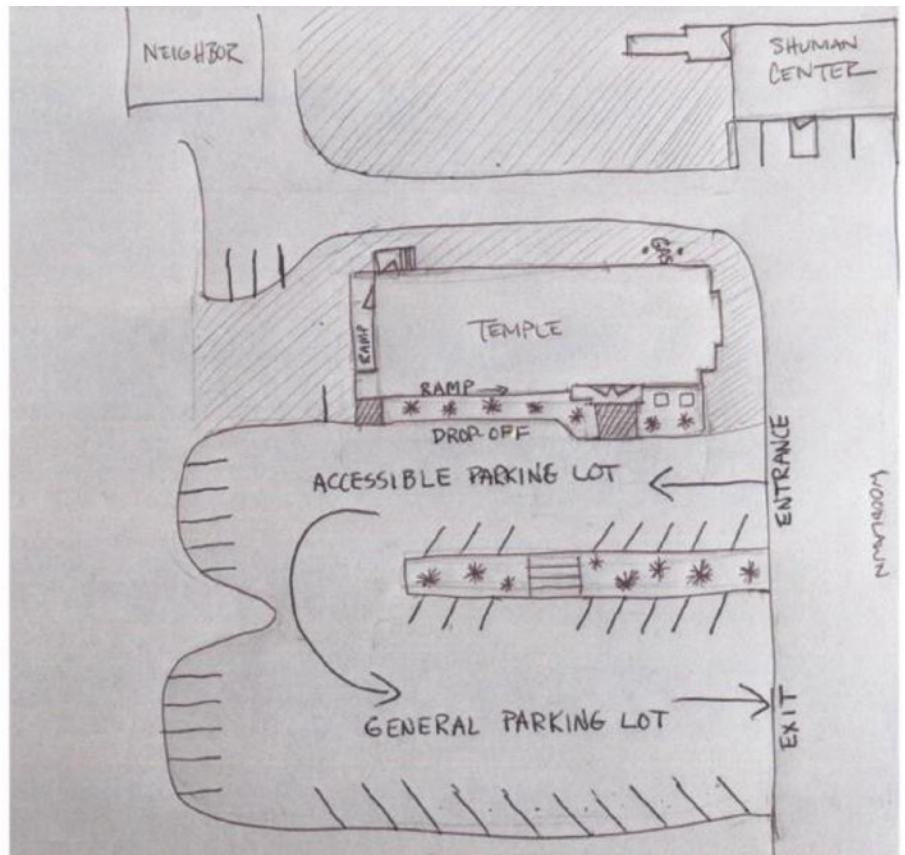 NEIGHBOR
SHUMAN
CENTER
TEMPLE
RAMP
RAMP
DROP-OFF
ACCESSIBLE PARKING LOT
ENTRANCE
WOODLAWN
GENERAL PARKING LOT
EXIT